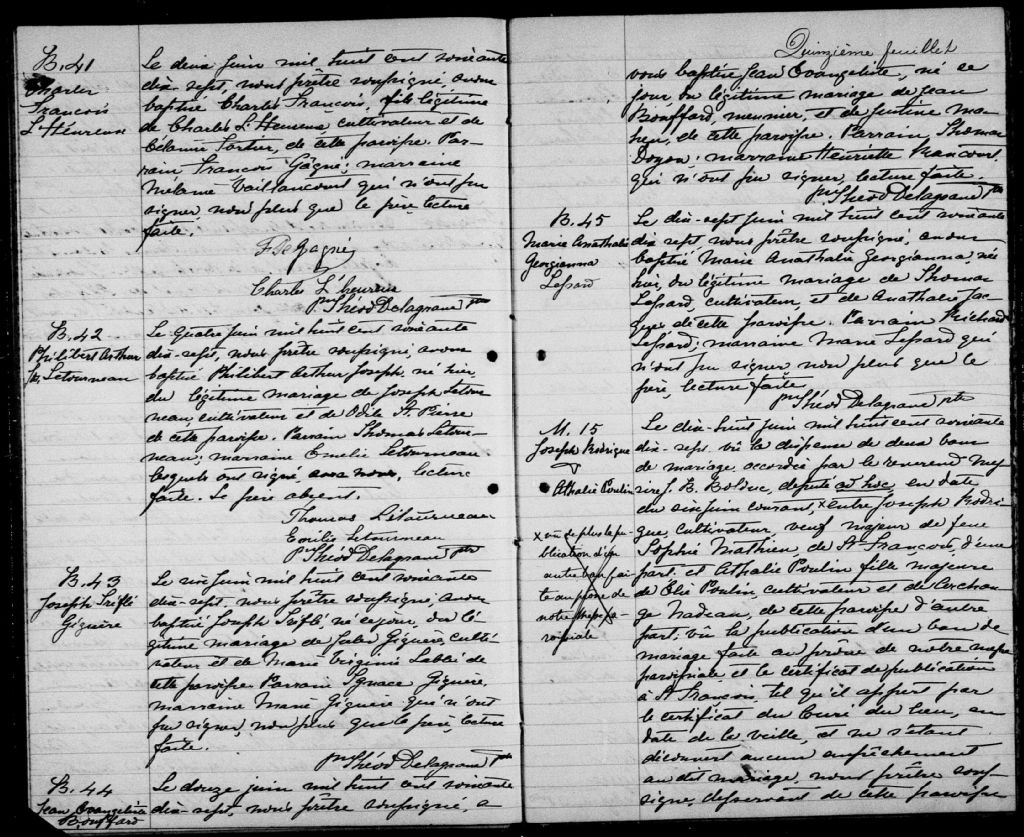 B. 41
Charles
François
L'Heureux
Le deux juin mil huit cent soixante
dix-sept, nous prêtre soussigné, avons
baptisé Charles François, fils légitime
de Charles L'Heureux cultivateur et de
Célanire Fortier, de cette paroisse. Par-
rain François Gagné; marraine
Mélanie Vaillancourt qui n'ont pu
signer, non plus que le père, lecture
faite.
F. De Gagné
Charles L'heureux
ptre Théod Delagrave ptre
B. 42
Philibert Arthur
Jos. Letourneau
Le quatre juin mil huit cent soixante
dix-sept, nous prêtre soussigné, avons
baptisé Philibert Arthur Joseph, né hier,
du légitime mariage de Joseph Letour-
neau, cultivateur et de Odile St. Pierre
de cette paroisse. Parrain Thomas Letour-
neau; marraine Emelie Letourneau
lesquels ont signé avec nous, lecture
faite. Le père absent.
Thomas Létourneau
Emilie Letourneau
Théod Delagrave ptre
B. 43
Joseph Trefflé
Giguère
Le six juin mil huit cent soixante
dix-sept, nous prêtre soussigné, avons
baptisé Joseph Trefflé né ce jour, du lé-
gitime mariage de Jules Giguère, culti-
vateur et de Marie Virginie Labbé de
cette paroisse. Parrain Ignace Giguère,
marraine Marie Giguère qui n'ont
pu signer, non plus que le père, lecture
faite.
Théod Delagrave ptre
B. 44
Jean Evangeliste
Bouffard
Le douze juin mil huit cent soixante
dix-sept, nous prêtre soussigné a
Quinzième feuillet
vons baptisé Jean Evangeliste, né ce
jour, du légitime mariage de Jean
Bouffard, meunier, et de Justine Ma-
heu, de cette paroisse. Parrain, Thomas
Doyon; marraine Henriette Rancourt,
qui n'ont pu signer, lecture faite.
Théod Delagrave ptre
B. 45
Marie Anathalie
Georgianna
Lessard
Le dix-sept juin mil huit cent soixante
dix-sept, nous prêtre soussigné, avons
baptisé Marie Anathalie Georgianna, née
hier, du légitime mariage de Thomas
Lessard, cultivateur, et de Anathalie Jac-
ques de cette paroisse. Parrain Richard
Lessard; marraine Marie Lessard qui
n'ont pu signer non plus que le
père, lecture faite
Théod Delagrave ptre
M. 15
Joseph Rodrigue
&
Athalie Poulin
x vû de plus la pu-
blication d'un
autre ban fai-
te au prône de
notre messe pa-
roissiale
Le dix-huit juin mil huit cent soixante
dix-sept vû la dispense de deux bans
de mariage accordée par le reverend Mes-
sire J. B. Bolduc, député ad hoc, en date
du six juin courant, x entre Joseph Rodri-
gue, cultivateur veuf majeur de feue
Sophie Mathieu, de St. François, d'une
part; et Athalie Poulin fille majeure
de Elie Poulin cultivateur et de Archan-
ge Nadeau, de cette paroisse d'autre
part: vû la publication d'un ban de
mariage faite au prône de notre messe
paroissiale et le certificat de publication
à St. François, tel qu'il appert par
le certificat du Curé du lieu, en
date de la veille, et ne s'étant
découvert aucun empêchement
au dit mariage, nous prêtre sous-
signé, desservant de cette paroisse